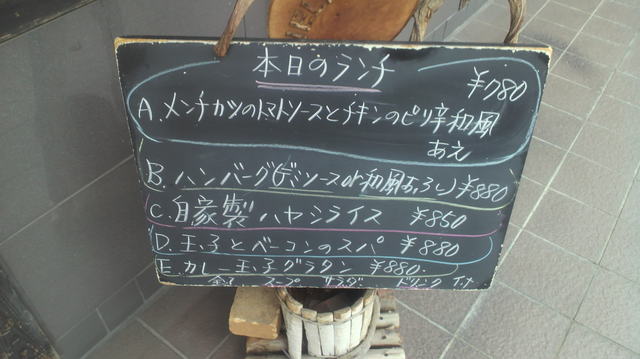 本日のランチ
¥780
A.メンチカツのトマトソースとチキンのピリ辛和風
あえ
B.ハンバーグ(デミソースor和風おろし)¥880
C.自家製ハヤシライス ¥850
D.玉子とベーコンのスパ ¥880
E.カレー玉子グラタン ¥880.
全て スープ サラダ ドリンク